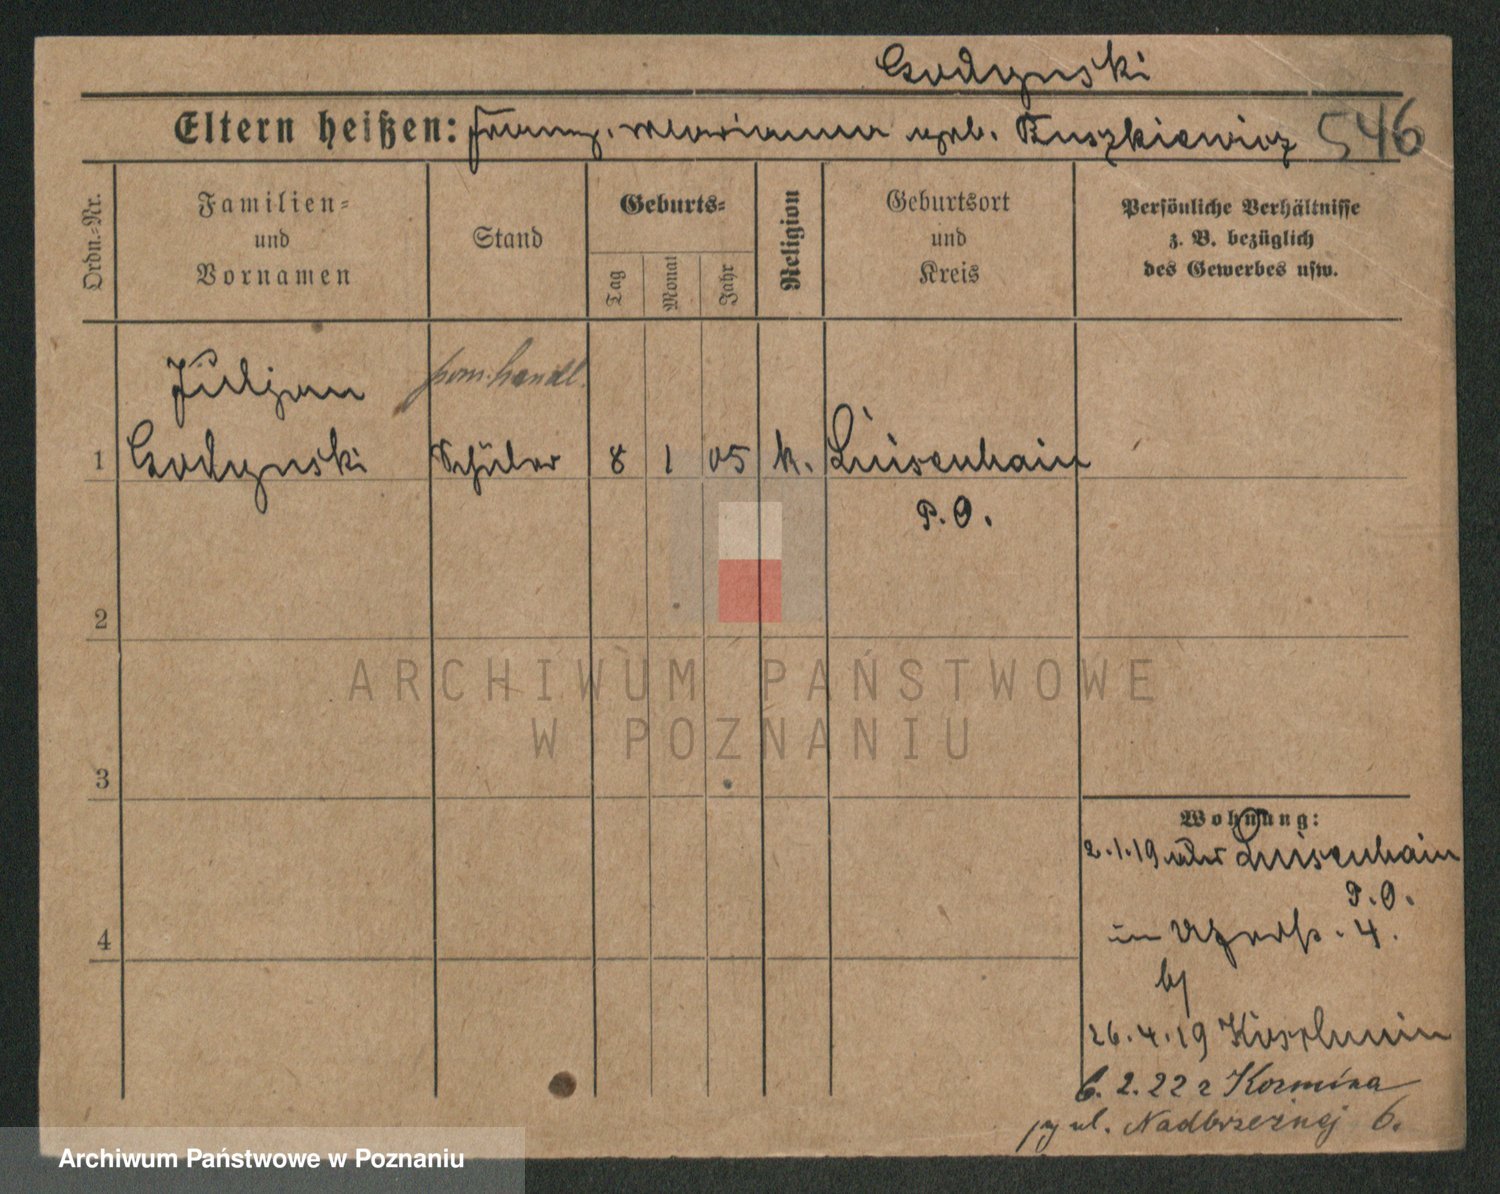 Godynski
Eltern heißen: Franz. Marianna geb. Ruszkiewicz 546
Ordn.-Nr.
Familien-
und
Vornamen
Stand
Geburts-
Tag
Monat
Jahr
Religion
Geburtsort
und
Kreis
Persönliche Verhältnisse
z. B. bezüglich
des Gewerbes usw.
Juljan
pom. handl.
1 Godynski Schüler 8 1 05 k. Luisenhain
P. O.
2
ARCHIWUM PAŃSTWOWE
W POZNANIU
3
Wohnung:
2.1.19 Luisenhain
P. O.
4
in 4.
b/
26.4.19 Koschmin
6. 2. 22 z Kozmina
ul. Nadbrzeżnej 6.
Archiwum Państwowe w Poznaniu